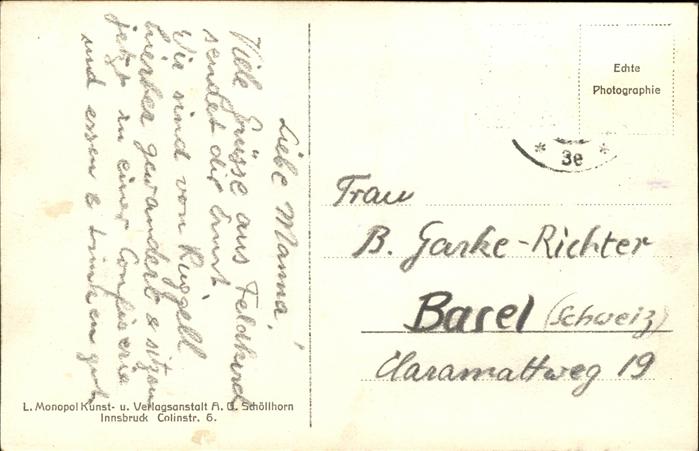 Liebe Mama!
Viele Grüsse aus Feldkirch
sendet dir Ernst
Wir sind von Ruggell
hierher gewandert & sitzen
jetzt in einer Confiserie
und essen & trinken gut
L. Monopol Kunst- u. Verlagsanstalt A. G. Schöllhorn
Innsbruck Colinstr. 6.
Echte
Photographie
* 3e *
Frau
B. Garke-Richter
Basel (Schweiz)
Claramattweg 19